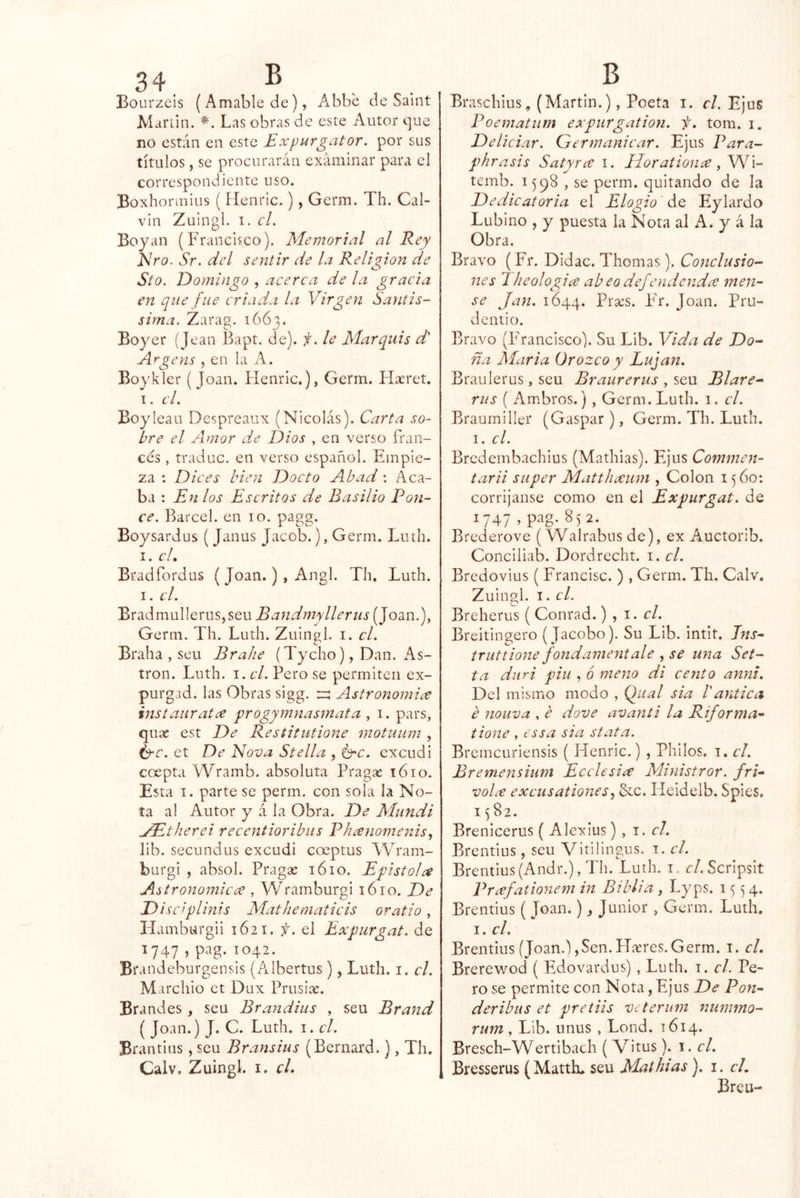 34 B
Bourzeis (Amable de), Abbè de Saint
Martin. *. Las obras de este Autor que
no están en este Expurgator. por sus
títulos, se procurarán exâminar para el
correspondiente uso.
Boxhormius (Henric.), Germ. Th. Cal-
vin Zuingl. 1. cl.
Boyan (Francisco). Memorial al Rey
Nro. Sr. del sentir de la Religion de
Sto. Domingo, acerca de la gracia
en que fue criada la Virgen Santis-
sima. Zarag. 1663.
Boyer (Jean Bapt. de). ℣. le Marquis d'
Argens, en la A.
Boykler (Joan. Henric.), Germ. Hæret.
1. cl.
Boyleau Despreaux (Nicolás). Carta so-
bre el Amor de Dios, en verso fran-
cés, traduc. en verso español. Empie-
za: Dices bien Docto Abad: Aca-
ba: En los Escritos de Basilio Pon-
ce. Barcel. en 10. pagg.
Boysardus (Janus Jacob.), Germ. Luth.
1. cl.
Bradfordus (Joan.), Angl. Th. Luth.
1. cl.
Bradmullerus, seu Bandmyllerus (Joan.),
Germ. Th. Luth. Zuingl. 1. cl.
Braha, seu Brahe (Tycho), Dan. As-
tron. Luth. 1. cl. Pero se permiten ex-
purgad. las Obras sigg. = Astronomiæ
instauratæ progymnasmata, 1. pars,
quæ est De Restitutione motuum,
&c. et De Nova Stella, &c. excudi
cœpta Wramb. absoluta Pragæ 1610.
Esta 1. parte se perm. con sola la No-
ta al Autor y á la Obra. De Mundi
Ætherei recentioribus Phænomenis,
lib. secundus excudi cœptus Wram-
burgi, absol. Pragæ 1610. Epistolæ
Astronomicæ, Wramburgi 1610. De
Disciplinis Mathematicis oratio,
Hamburgii 1621. ℣. el Expurgat. de
1747, pag. 1042.
Brandeburgensis (Albertus), Luth. 1. cl.
Marchio et Dux Prusiæ.
Brandes, seu Brandius, seu Brand
(Joan.) J. C. Luth. 1. cl.
Brantius, seu Bransius (Bernard.), Th.
Calv. Zuingl. 1. cl.
B
Braschius, (Martin.), Poeta 1. cl. Ejus
Poematum expurgation. ℣. tom. 1.
Deliciar. Germanicar. Ejus Para-
phrasis Satyræ 1. Horationæ, Wi-
temb. 1598, se perm. quitando de la
Dedicatoria el Elogio de Eylardo
Lubino, y puesta la Nota al A. y á la
Obra.
Bravo (Fr. Didac. Thomas). Conclusio-
nes Theologiæ ab eo defendendæ men-
se Jan. 1644. Præs. Fr. Joan. Pru-
dentio.
Bravo (Francisco). Su Lib. Vida de Do-
ña Maria Orozco y Lujan.
Braulerus, seu Braurerus, seu Blare-
rus (Ambros.), Germ. Luth. 1. cl.
Braumiller (Gaspar), Germ. Th. Luth.
1. cl.
Bredembachius (Mathias). Ejus Commen-
tarii super Matthæum, Colon 1560:
corrijanse como en el Expurgat. de
1747, pag. 852.
Brederove (Walrabus de), ex Auctorib.
Conciliab. Dordrecht. 1. cl.
Bredovius (Francisc.), Germ. Th. Calv.
Zuingl. 1. cl.
Breherus (Conrad.), 1. cl.
Breitingero (Jacobo). Su Lib. intit. Ins-
truttione fondamentale, se una Set-
ta duri piu, ó meno di cento anni.
Del mismo modo, Qual sia l'antica
è nouva, è dove avanti la Riforma-
tione, essa sia stata.
Bremcuriensis (Henric.), Philos. 1. cl.
Bremensium Ecclesiæ Ministror. fri-
volæ excusationes, &c. Heidelb. Spies.
1582.
Brenicerus (Alexius), 1. cl.
Brentius, seu Vitilingus. 1. cl.
Brentius (Andr.), Th. Luth. 1. cl. Scripsit
Præfationem in Biblia, Lyps. 1554.
Brentius (Joan.), Junior, Germ. Luth.
1. cl.
Brentius (Joan.), Sen. Hæres. Germ. 1. cl.
Brerewod (Edovardus), Luth. 1. cl. Pe-
ro se permite con Nota, Ejus De Pon-
deribus et pretiis veterum nummo-
rum, Lib. unus, Lond. 1614.
Bresch-Wertibach (Vitus). 1. cl.
Bresserus (Matth. seu Mathias). 1. cl.
Breu-